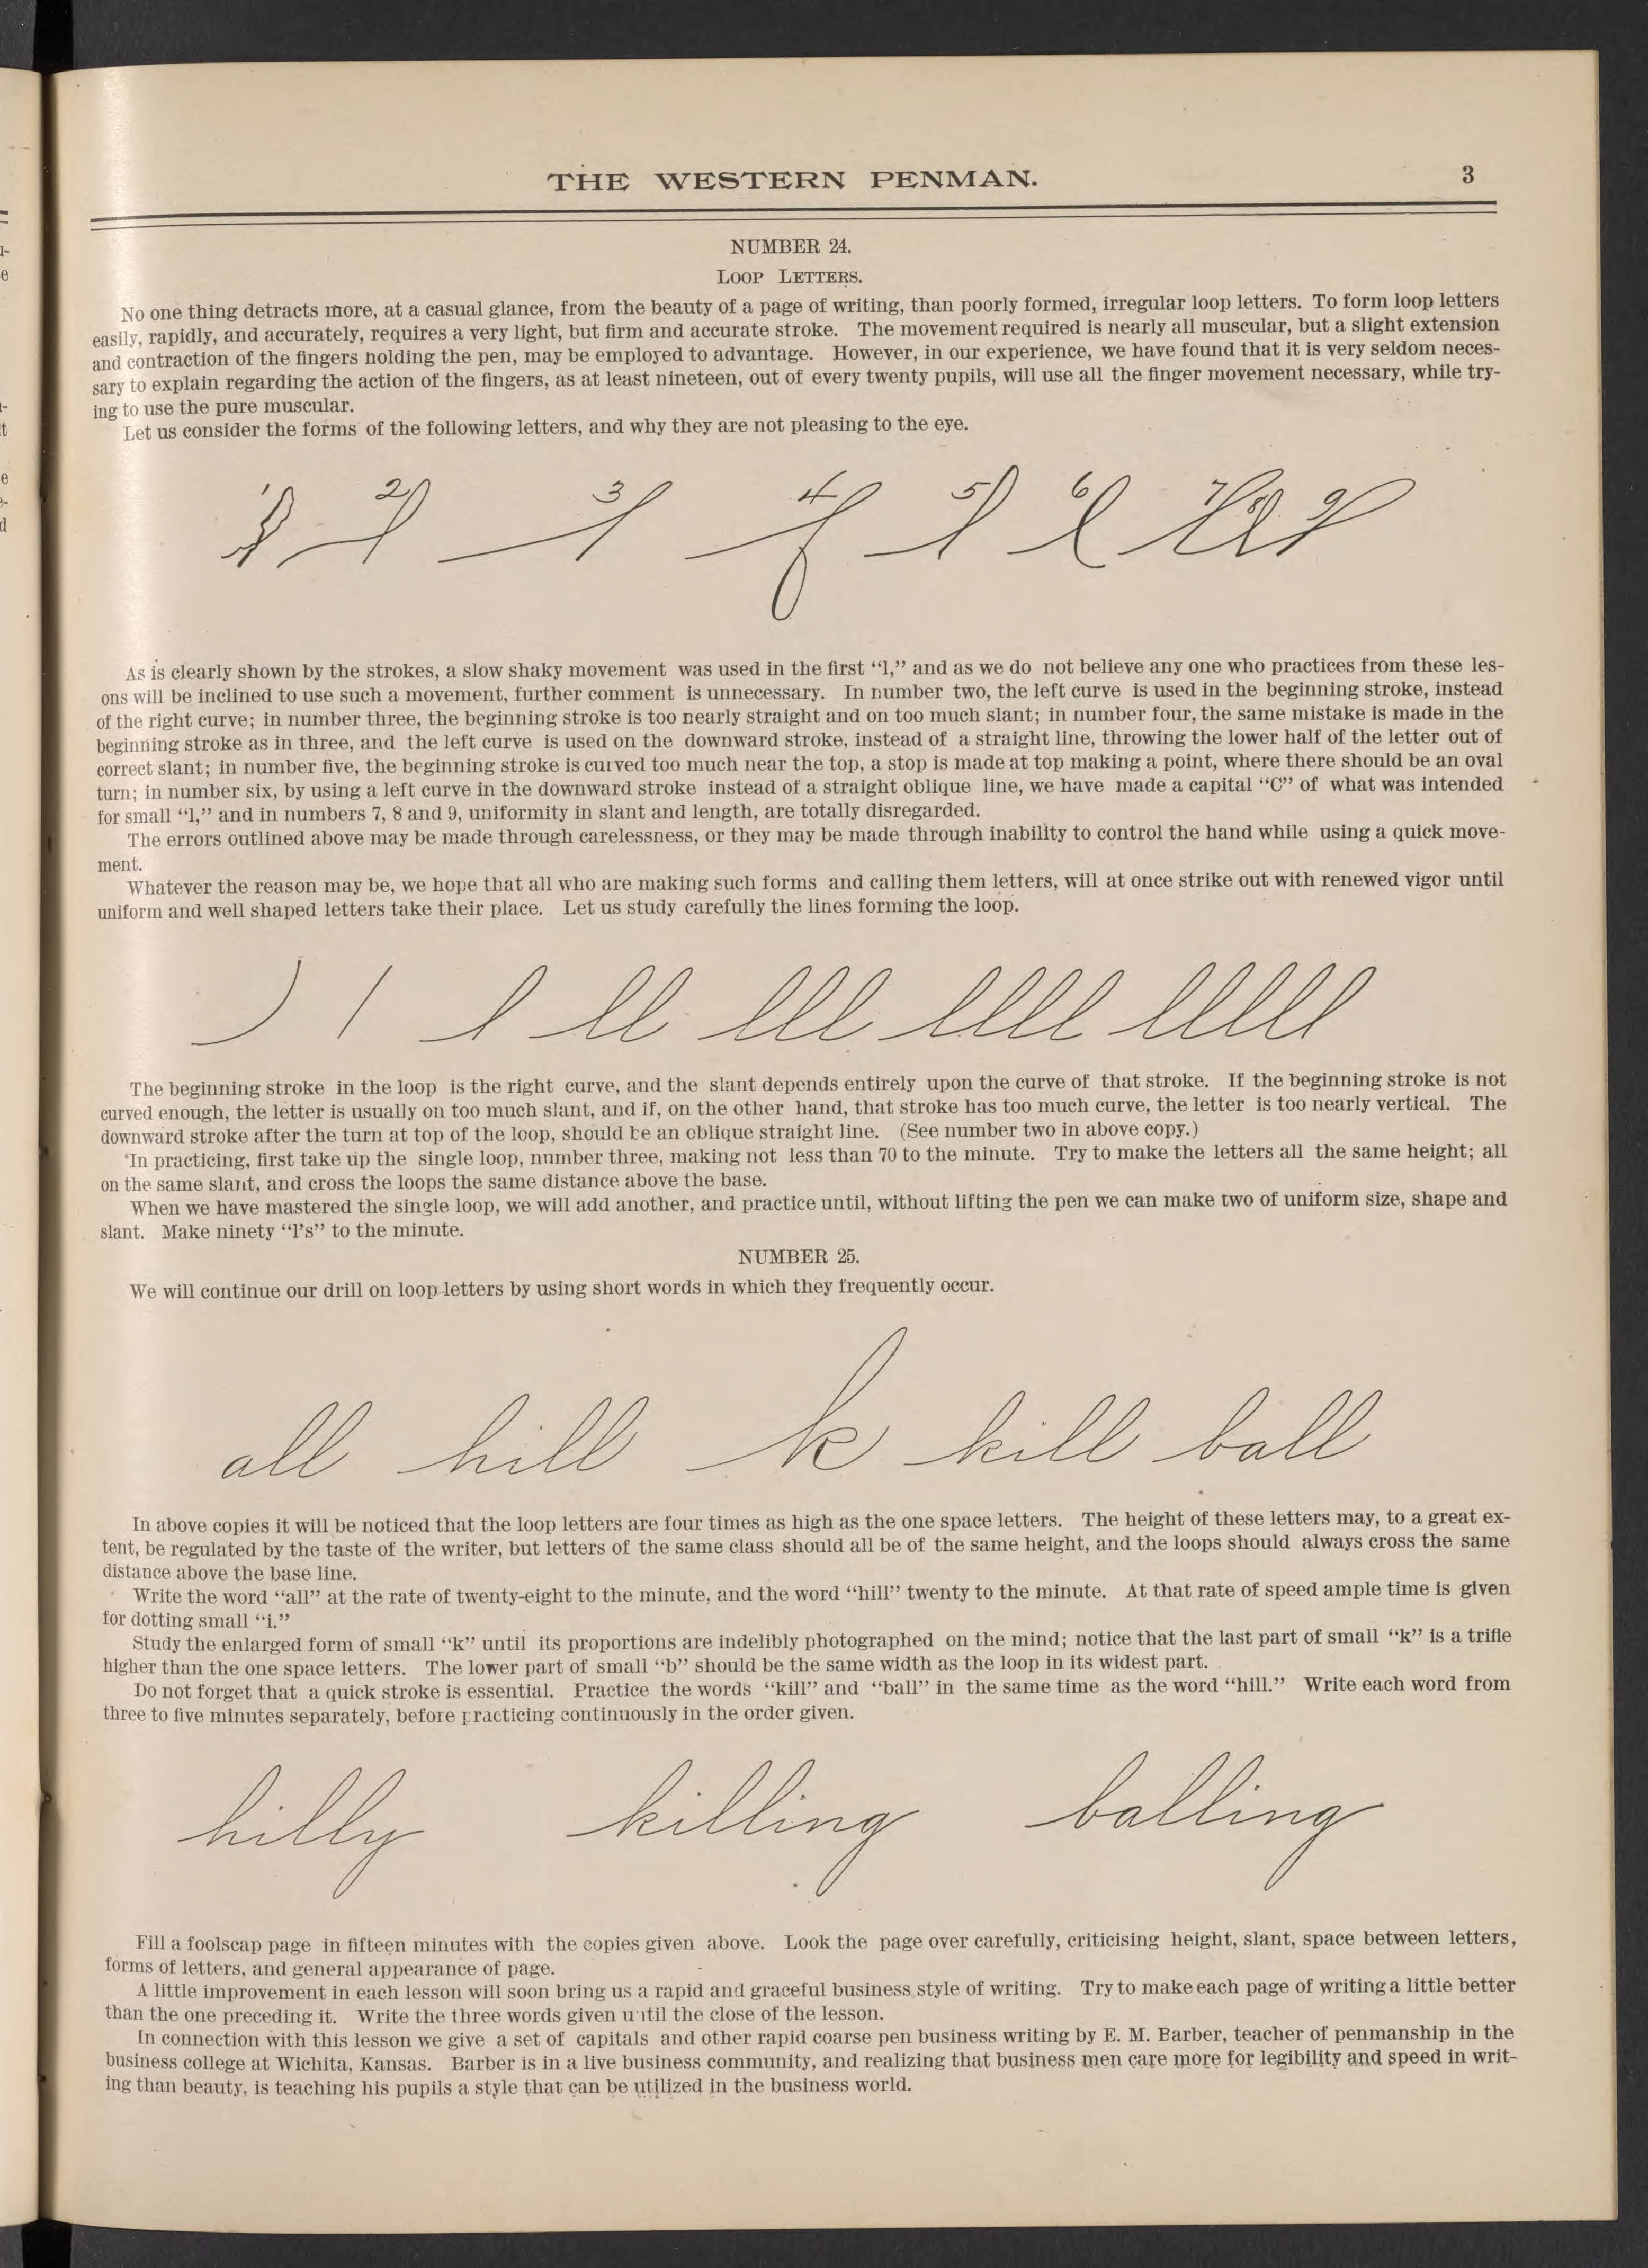 THE WESTERN PENMAN.
3
NUMBER 24.
LOOP LETTERS.
No one thing detracts more, at a casual glance, from the beauty of a page of writing, than poorly formed, irregular loop letters. To form loop letters
easily, rapidly, and accurately, requires a very light, but firm and accurate stroke. The movement required is nearly all muscular, but a slight extension
and contraction of the fingers holding the pen, may be employed to advantage. However, in our experience, we have found that it is very seldom neces-
sary to explain regarding the action of the fingers, as at least nineteen, out of every twenty pupils, will use all the finger movement necessary, while try-
ing to use the pure muscular.
Let us consider the forms of the following letters, and why they are not pleasing to the eye.
1 l 2 l 3 l 4 f 5 l 6 l 7 l 8 l 9 l
As is clearly shown by the strokes, a slow shaky movement was used in the first “l,” and as we do not believe any one who practices from these les-
ons will be inclined to use such a movement, further comment is unnecessary. In number two, the left curve is used in the beginning stroke, instead
of the right curve; in number three, the beginning stroke is too nearly straight and on too much slant; in number four, the same mistake is made in the
beginning stroke as in three, and the left curve is used on the downward stroke, instead of a straight line, throwing the lower half of the letter out of
correct slant; in number five, the beginning stroke is curved too much near the top, a stop is made at top making a point, where there should be an oval
turn; in number six, by using a left curve in the downward stroke instead of a straight oblique line, we have made a capital “C” of what was intended
for small “l,” and in numbers 7, 8 and 9, uniformity in slant and length, are totally disregarded.
The errors outlined above may be made through carelessness, or they may be made through inability to control the hand while using a quick move-
ment.
Whatever the reason may be, we hope that all who are making such forms and calling them letters, will at once strike out with renewed vigor until
uniform and well shaped letters take their place. Let us study carefully the lines forming the loop.
l ll lll llll lllll
The beginning stroke in the loop is the right curve, and the slant depends entirely upon the curve of that stroke. If the beginning stroke is not
curved enough, the letter is usually on too much slant, and if, on the other hand, that stroke has too much curve, the letter is too nearly vertical. The
downward stroke after the turn at top of the loop, should be an oblique straight line. (See number two in above copy.)
In practicing, first take up the single loop, number three, making not less than 70 to the minute. Try to make the letters all the same height; all
on the same slant, and cross the loops the same distance above the base.
When we have mastered the single loop, we will add another, and practice until, without lifting the pen we can make two of uniform size, shape and
slant. Make ninety “l's” to the minute.
NUMBER 25.
We will continue our drill on loop letters by using short words in which they frequently occur.
all hill k kill ball
In above copies it will be noticed that the loop letters are four times as high as the one space letters. The height of these letters may, to a great ex-
tent, be regulated by the taste of the writer, but letters of the same class should all be of the same height, and the loops should always cross the same
distance above the base line.
Write the word “all” at the rate of twenty-eight to the minute, and the word “hill” twenty to the minute. At that rate of speed ample time is given
for dotting small “i.”
Study the enlarged form of small “k” until its proportions are indelibly photographed on the mind; notice that the last part of small “k” is a trifle
higher than the one space letters. The lower part of small “b” should be the same width as the loop in its widest part.
Do not forget that a quick stroke is essential. Practice the words “kill” and “ball” in the same time as the word “hill.” Write each word from
three to five minutes separately, before practicing continuously in the order given.
hilly killing balling
Fill a foolscap page in fifteen minutes with the copies given above. Look the page over carefully, criticising height, slant, space between letters,
forms of letters, and general appearance of page.
A little improvement in each lesson will soon bring us a rapid and graceful business style of writing. Try to make each page of writing a little better
than the one preceding it. Write the three words given until the close of the lesson.
In connection with this lesson we give a set of capitals and other rapid coarse pen business writing by E. M. Barber, teacher of penmanship in the
business college at Wichita, Kansas. Barber is in a live business community, and realizing that business men care more for legibility and speed in writ-
ing than beauty, is teaching his pupils a style that can be utilized in the business world.